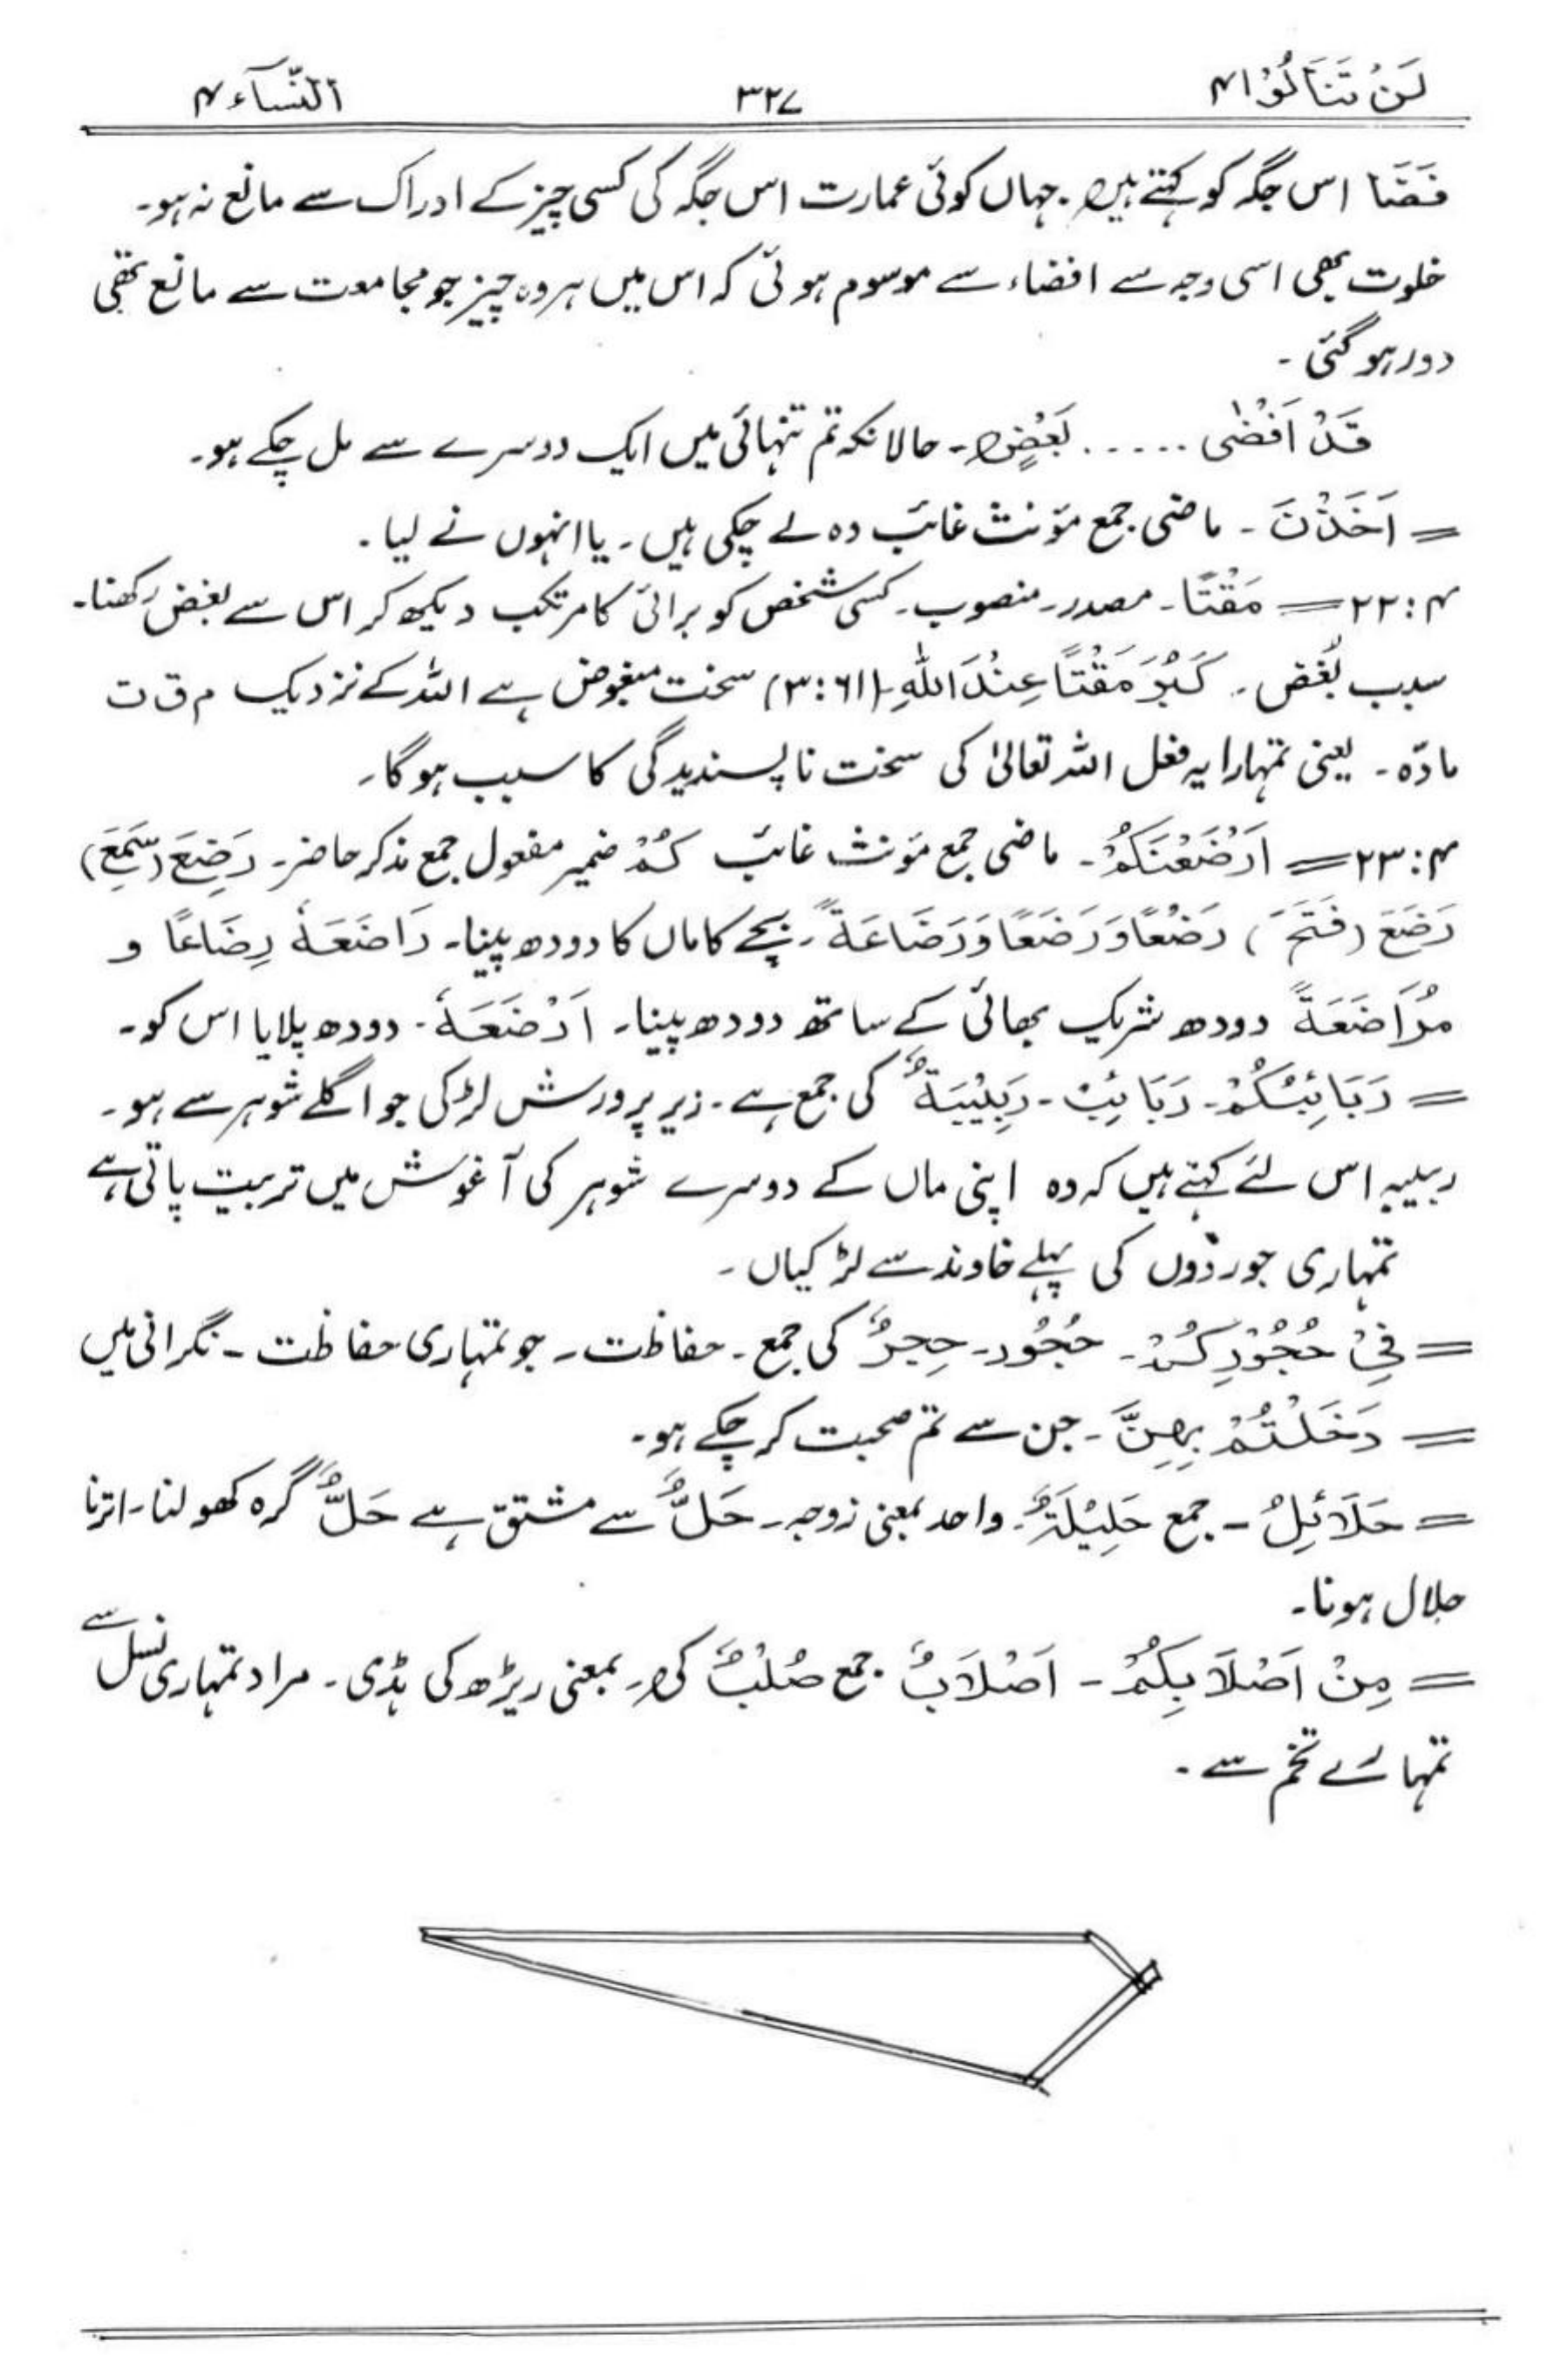 لَنْ تَنَالُوْا۴ ۳۲۷ النِّسَآء۴
فَضَا اس جگہ کو کہتے ہیں۔ جہاں کوئی عمارت اس جگہ کی کسی چیز کے ادراک سے مانع نہ ہو۔
خلوت بھی اسی وجہ سے افضاء سے موسوم ہوئی کہ اس میں ہر وہ چیز جو مجامعت سے مانع تھی
دور ہو گئی ۔
قَدْ اَفْضٰی ..... بَعْضٍ۔ حالانکہ تم تنہائی میں ایک دوسرے سے مل چکے ہو۔
= اَخَذْنَ ۔ ماضی جمع مؤنث غائب وہ لے چکی ہیں۔ یا انہوں نے لیا ۔
۴:۲۲ = مَقْتًا۔ مصدر۔ منصوب۔ کسی شخص کو برائی کا مرتکب دیکھ کر اس سے بغض رکھنا۔
سبب بُغض ۔ کَبُرَ مَقْتًا عِنْدَ اللّٰہِ۔ (۶۱:۳) سخت مبغوض ہے اللہ کے نزدیک م ق ت
مادّہ ۔ یعنی تمہارا یہ فعل اللہ تعالیٰ کی سخت ناپسندیدگی کا سبب ہوگا۔
۴:۲۳ = اَرْضَعْنَکُمْ۔ ماضی جمع مؤنث غائب کُمْ ضمیر مفعول جمع مذکر حاضر۔ رَضِعَ (سَمِعَ)
رَضَعَ (فَتَحَ) رَضْعًا وَرَضَعًا وَرَضَاعَةً۔ بچے کا ماں کا دودھ پینا۔ رَاضَعَہٗ رِضَاعًا و
مُرَاضَعَةً دودھ شریک بھائی کے ساتھ دودھ پینا۔ اَرْضَعَہٗ۔ دودھ پلایا اس کو۔
= رَبَائِبُکُمْ۔ رَبَائِبْ۔ رَبِیْبَةٌ کی جمع ہے۔ زیر پرورش لڑکی جو اگلے شوہر سے ہو۔
ربیبہ اس لئے کہتے ہیں کہ وہ اپنی ماں کے دوسرے شوہر کی آغوش میں تربیت پاتی ہے
تمہاری جورؤوں کی پہلے خاوند سے لڑکیاں ۔
= فِیْ حُجُوْرِکُمْ۔ حُجُور۔ حِجرٌ کی جمع۔ حفاظت۔ جو تمہاری حفاظت۔ نگرانی میں
= دَخَلْتُمْ بِھِنَّ۔ جن سے تم صحبت کر چکے ہو۔
= حَلَائِلُ ۔ جمع حَلِیْلَةٌ۔ واحد بمعنی زوجہ۔ حَلٌّ سے مشتق ہے حَلٌّ گرہ کھولنا۔ اترنا
حلال ہونا۔
= مِنْ اَصْلَابِکُمْ ۔ اَصْلَابٌ جمع صُلْبٌ کی۔ بمعنی ریڑھ کی ہڈی۔ مراد تمہاری نسل سے
تمہارے تخم سے ۔